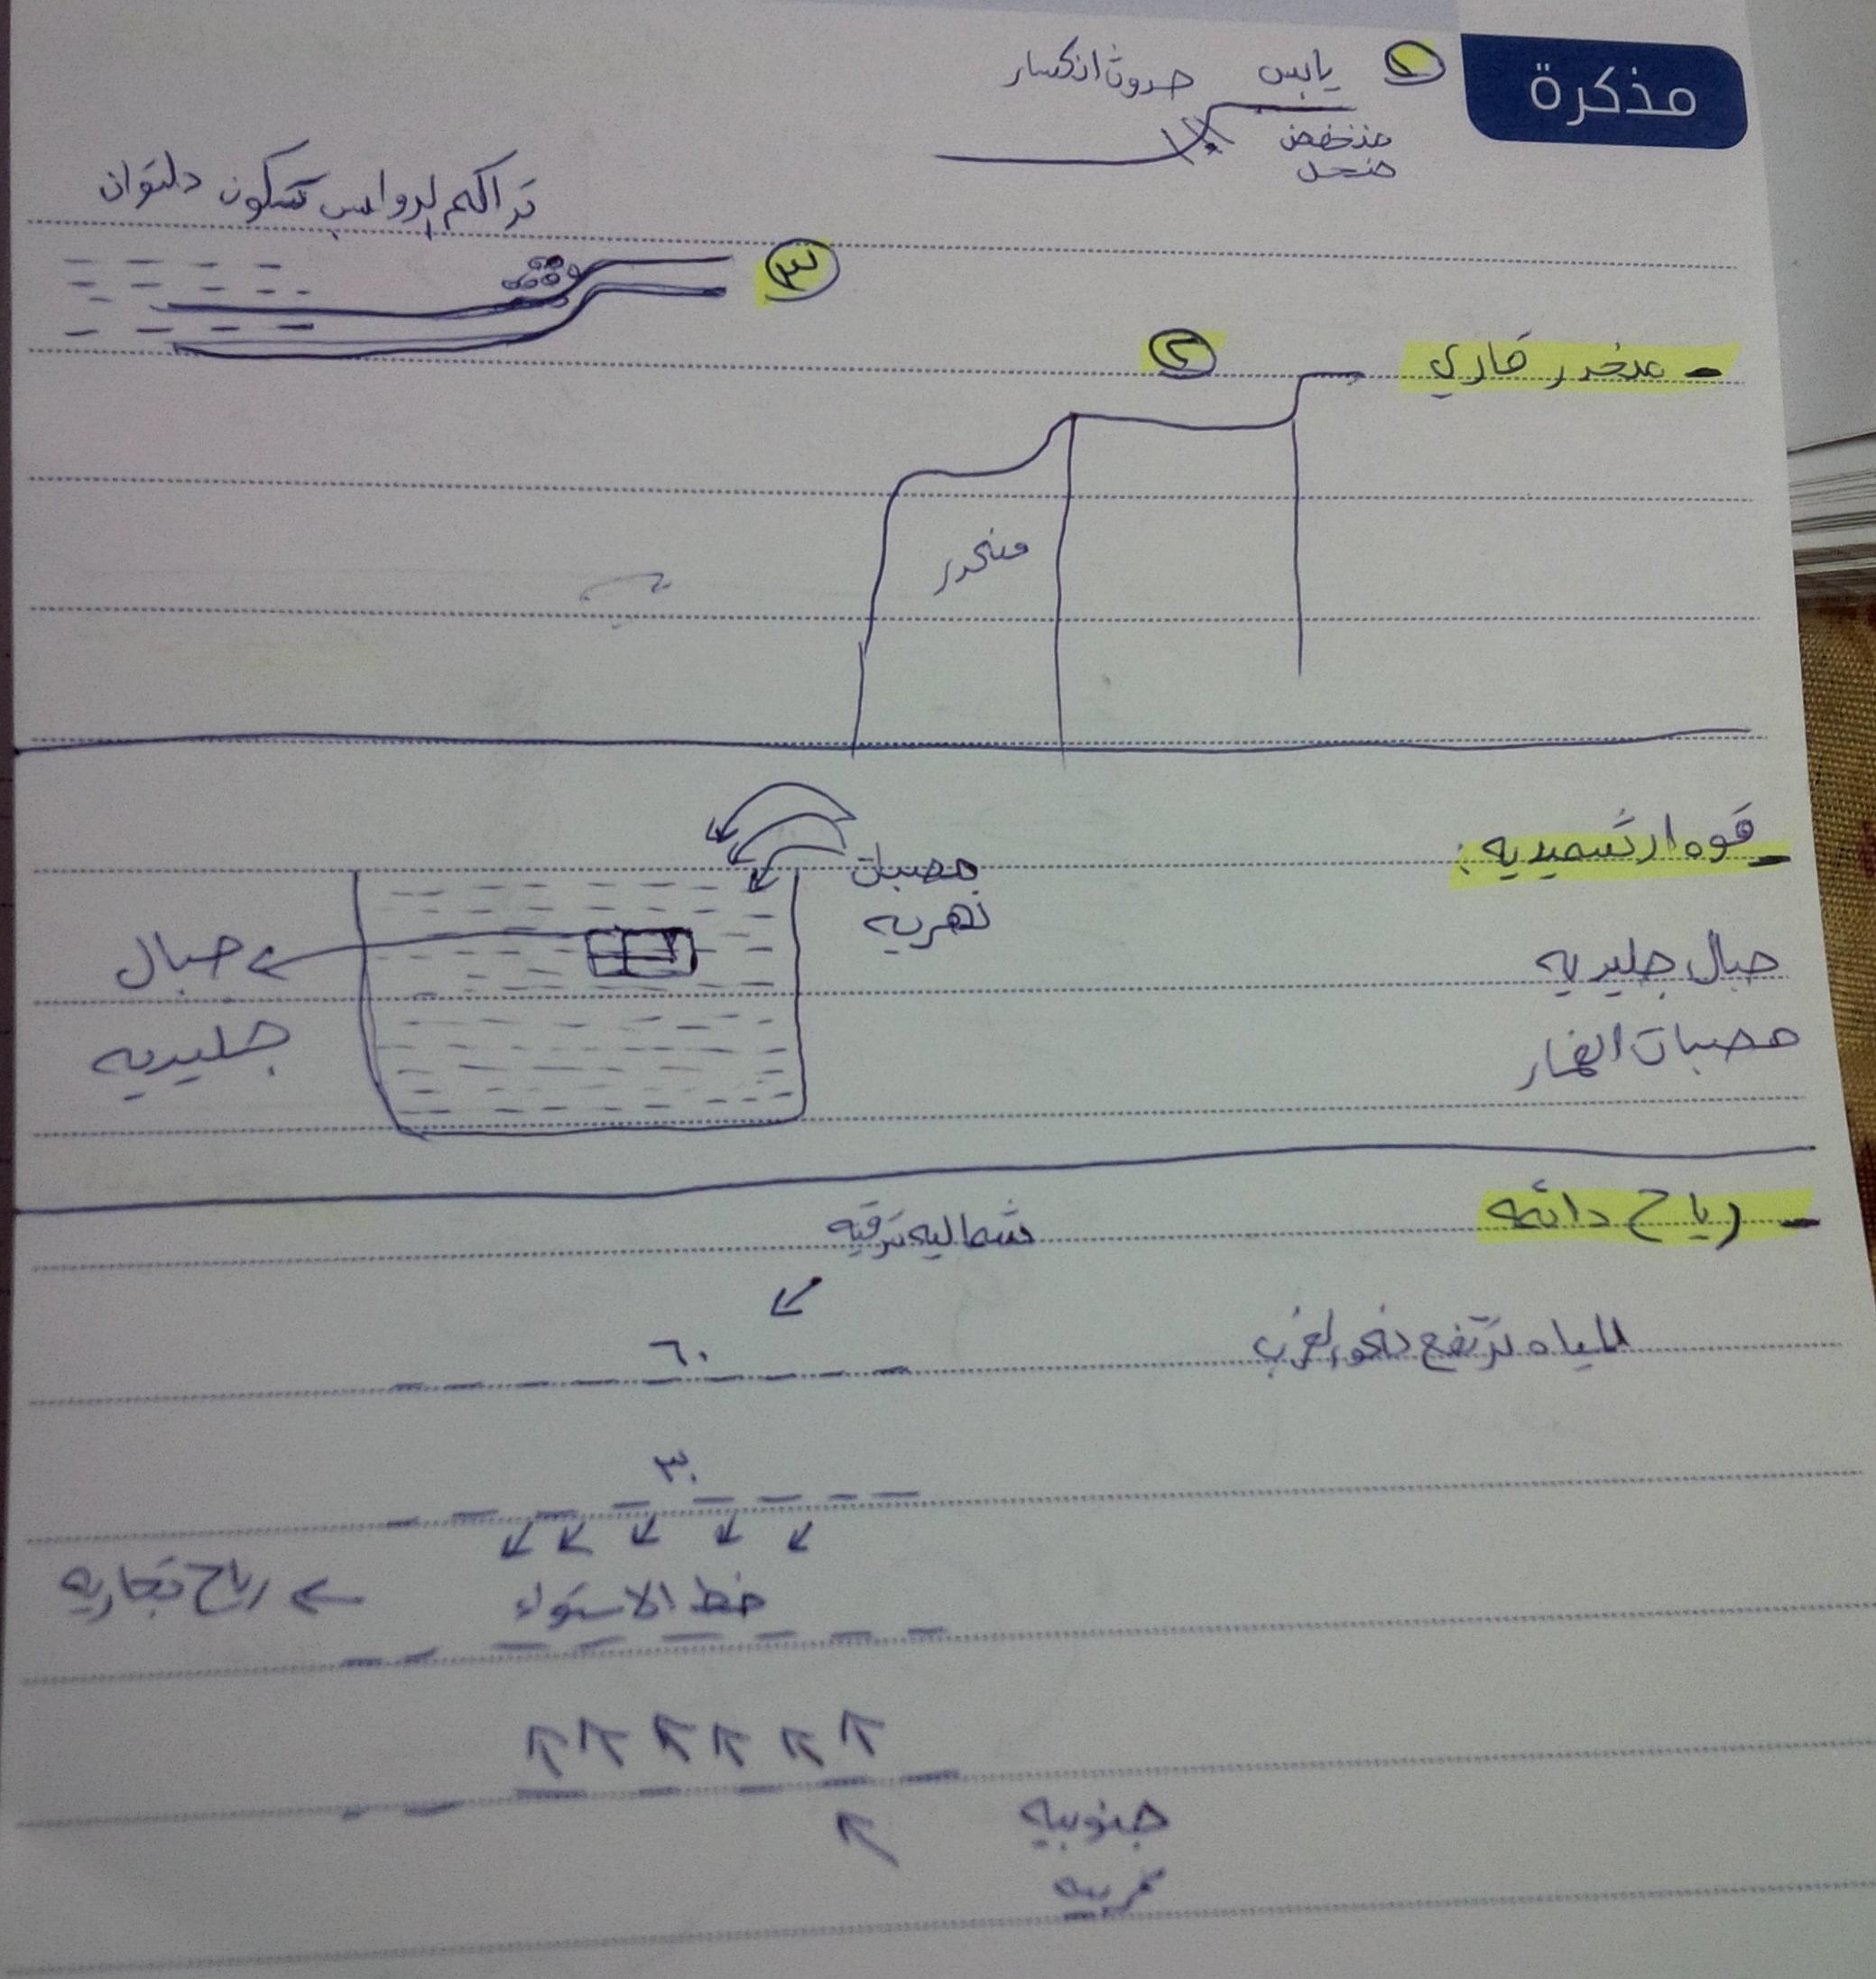 مذكرة
١ يابس حدوث انكسار
منخفض
ضحل
تراكم الرواسب تتكون دلتوان
٣
- منحدر قاري ٢
منحدر
- قوه ارشميديه :
مصبات
نهريه
جبال جليديه
جبال
جليديه
مصبات انهار
- رياح دائمه
شماليه شرقيه
المياه ترتفع نحو الغرب
٦٠
٣٠
خط الاستواء
رياح تجاريه
جنوبيه
غربيه